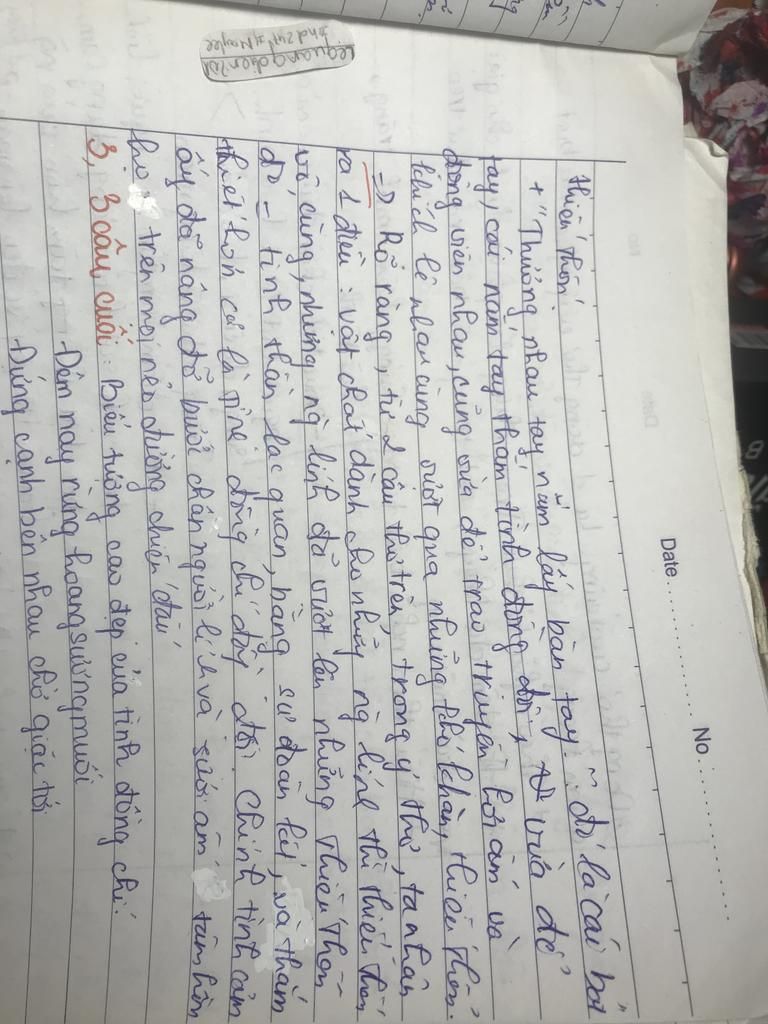 No
Date
thiếu thốn.
+ "Thương nhau tay nắm lấy bàn tay" đó là cái bắt
tay, cái nắm tay thắm tình đồng đội, vừa để
động viên nhau, cũng vừa để trao truyền hơi ấm và
khích lệ nhau cùng vượt qua những khó khăn, thiếu thốn.
=> Rõ ràng, từ 2 câu thơ trên, trong ý thơ, ta nhận
ra 1 điều: vật chất dành cho những ng lính thì thiếu thốn
vô cùng, nhưng ng lính đã vượt lên những thiếu thốn
đó - tinh thần lạc quan, bằng sự đoàn kết, và thắm
thiết hơn cả là tình đồng chí đồng đội. Chính tình cảm
ấy đã nâng đỡ bước chân người lính và sưởi ấm tâm hồn
họ trên mọi nẻo đường chiến đấu
3, 3 câu cuối: Biểu tượng cao đẹp của tình đồng chí:
- Đêm nay rừng hoang sương muối
- Đứng cạnh bên nhau chờ giặc tới